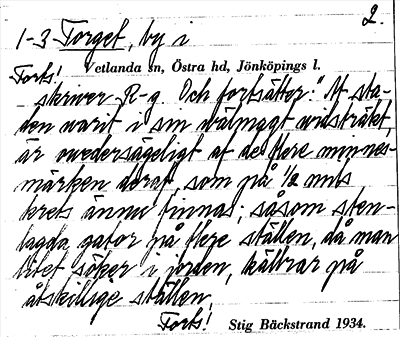 2.
1-3 Torget, by i
Vetlanda sn, Östra hd, Jönköpings l.
Forts!
skriver R-g. Och fortsätter: "At sta-
den varit i sin wälmagt widsträkt,
är owedersägeligt af de flere minnes-
märken deraf, som på 1/2 mils
krets ännu finnas; såsom sten-
lagda gator på flere ställen, då man
litet söker i jorden, källrar på
åtskillige ställen,
Forts!
Stig Bäckstrand 1934.